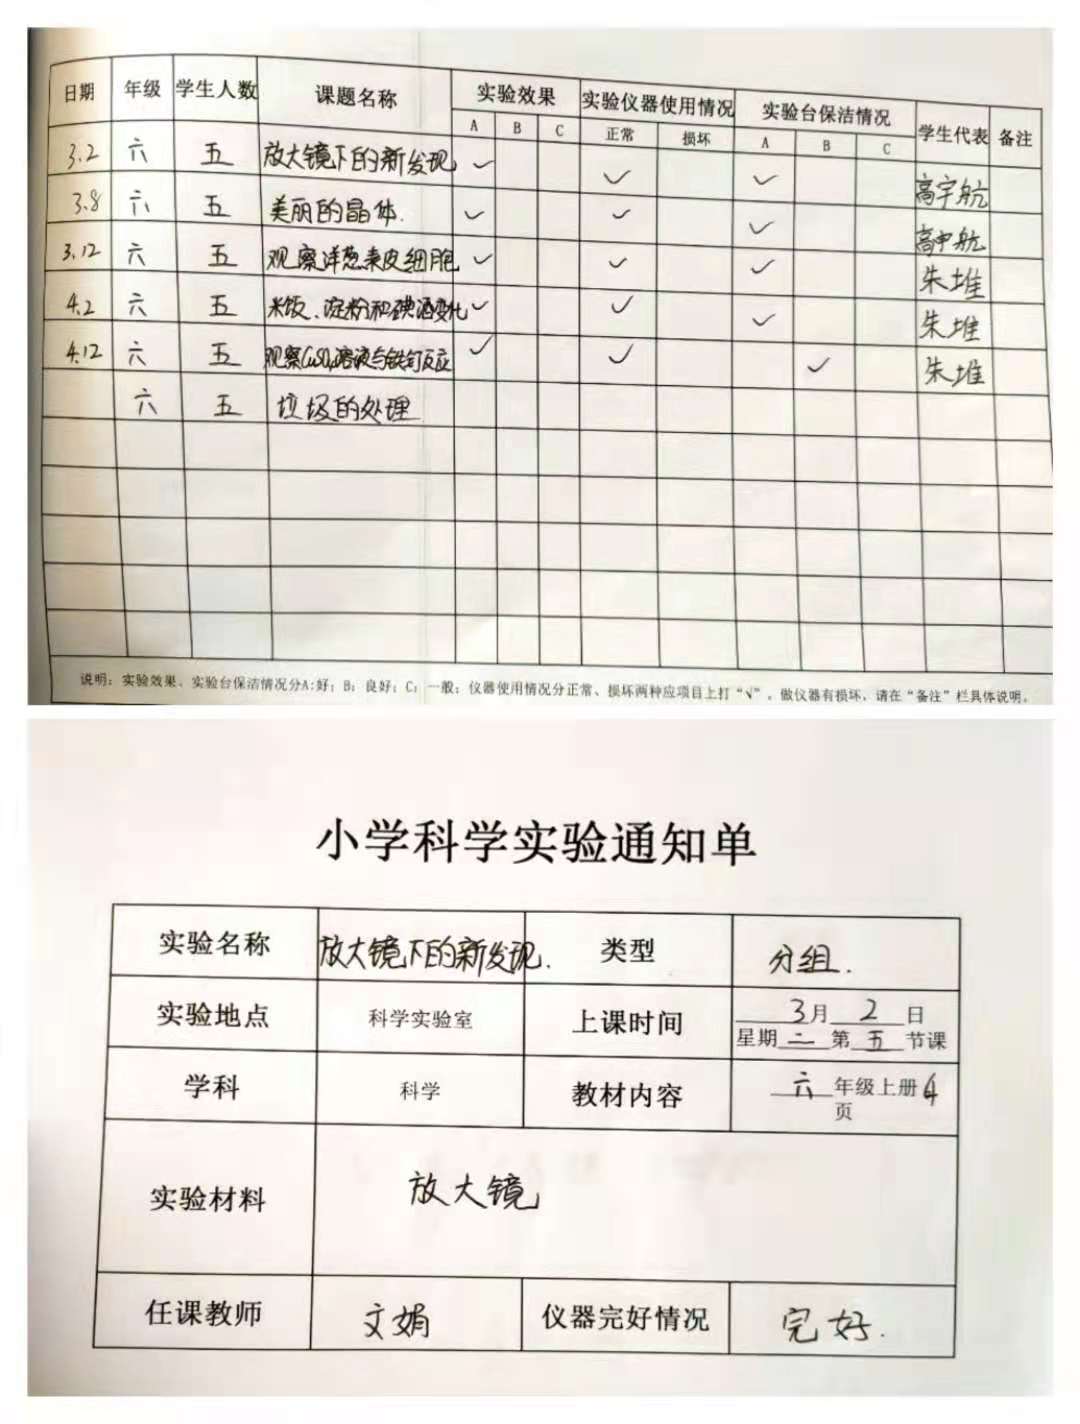 日期 年级 学生人数 课题名称 实验效果 实验仪器使用情况 实验台保洁情况 学生代表 备注
A B C 正常 损坏 A B C
3.2 六 五 放大镜下的新发现 ✓ ✓ ✓ 高宇航
3.8 六 五 美丽的晶体. ✓ ✓ ✓ 高宇航
3.12 六 五 观察洋葱表皮细胞 ✓ ✓ ✓ 朱堆
4.2 六 五 米饭、淀粉和碘酒变化 ✓ ✓ ✓ 朱堆
4.12 六 五 观察CuSO4溶液与铁钉反应 ✓ ✓ ✓ 朱堆
六 五 垃圾的处理
说明：实验效果、实验台保洁情况分A:好；B：良好；C：一般；仪器使用情况分正常、损坏两种应项目上打“√”。做仪器有损坏，请在“备注”栏具体说明。
小学科学实验通知单
实验名称 放大镜下的新发现. 类型 分组.
实验地点 科学实验室 上课时间 3月2日
星期二第五节课
学科 科学 教材内容 六年级上册4
页
实验材料 放大镜
任课教师 文娟 仪器完好情况 完好.